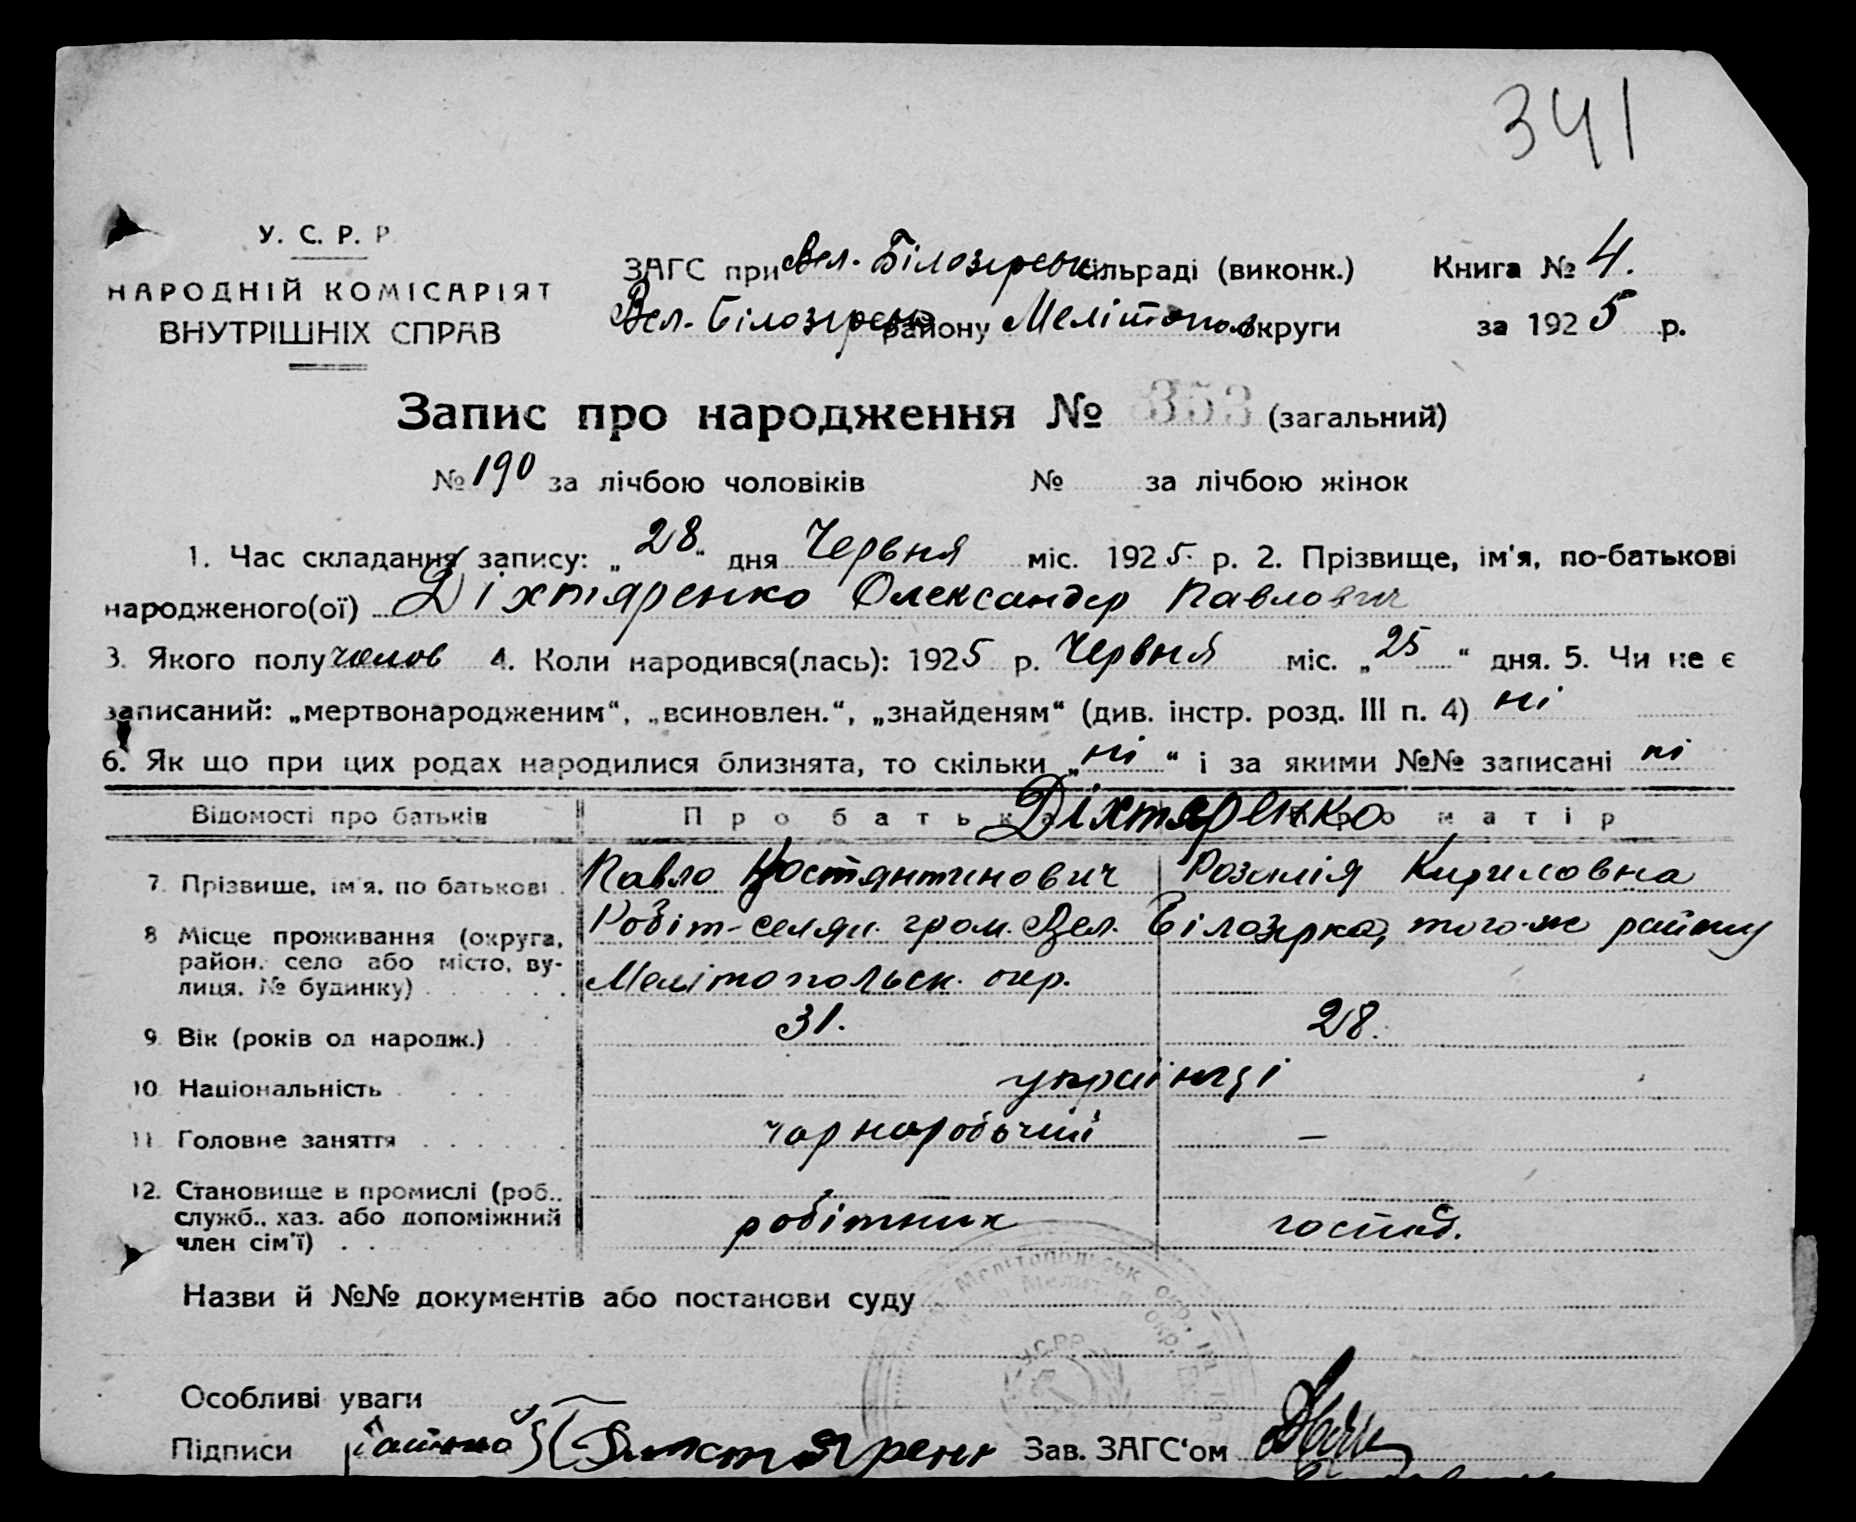 341
У. С. Р. Р.
НАРОДНІЙ КОМІСАРІЯТ
ВНУТРІШНІХ СПРАВ
ЗАГС при Вел. Білозирськ сільраді (виконк.) Книга № 4.
Вел. Білозирськ району Мелітопол округи за 1925 р.
Запис про народження № 353 (загальний)
№ 190 за лічбою чоловіків № за лічбою жінок
1. Час складання запису: „28“ дня Червня міс. 1925 р. 2. Прізвище, ім'я, по-батькові
народженого(ої) Діхтяренко Олександер Павлович
3. Якого полу чолов 4. Коли народився(лась): 1925 р. Червня міс. „25“ дня. 5. Чи не є
записаний: „мертвонародженим“, „всиновлен.“, „знайденям“ (див. інстр. розд. III п. 4) ні
6. Як що при цих родах народилися близнята, то скільки „ні“ і за якими №№ записані ні
Відомості про батьків Про батька Про матір
Діхтяренко
7. Прізвище, ім'я, по батькові Павло Костянтинович Розалія Кириловна
8 Місце проживання (округа, район, село або місто, вулиця, № будинку) Робіт-селян. гром. Вел. Білозирка, того-ж району
Мелітопольськ. окр.
9 Вік (років од народж.) 31. 28.
10 Національність українці
11 Головне заняття чорноробочий —
12. Становище в промислі (роб., служб., хаз. або допоміжний член сім'ї) робітник господ.
Назви й №№ документів або постанови суду
Особливі уваги
Підписи Зав. ЗАГС'ом
У.С.Р.Р.